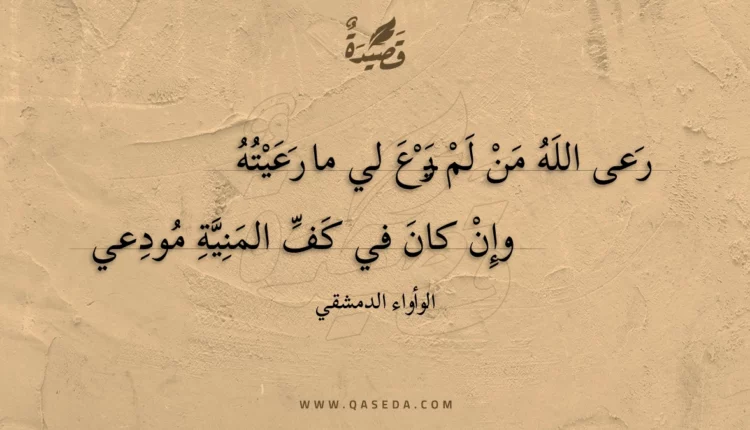 قَصِيدَةٌ
رَعى اللَهُ مَنْ لَمْ يَرْعَ لي ما رَعَيْتُهُ
وإِنْ كانَ في كَفِّ المَنِيَّةِ مُودِعي
الوأواء الدمشقي
WWW.QASEDA.COM